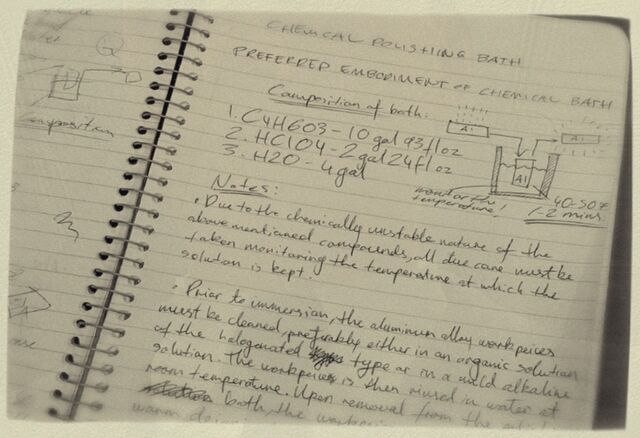 CHEMICAL POLISHING BATH
PREFERRED EMBODIMENT OF CHEMICAL BATH
Composition of bath:
1. C4H6O3 - 10 gal 93 fl oz
2. HClO4 - 2 gal 24 fl oz
3. H2O - 4 gal
Al
Al
Al
monitor the
temperature!
40-50°F
1-2 mins
Notes:
• Due to the chemically unstable nature of the
above mentioned compounds, all due care must be
taken monitoring the temperature at which the
solution is kept.
• Prior to immersion, the aluminum alloy workpeices
must be cleaned, preferably either in an organic solution
of the halogonated type or in a mild alkaline
solution. The workpeices is then rinsed in water at
room temperature. Upon removal from the
bath, the
warm
omposition